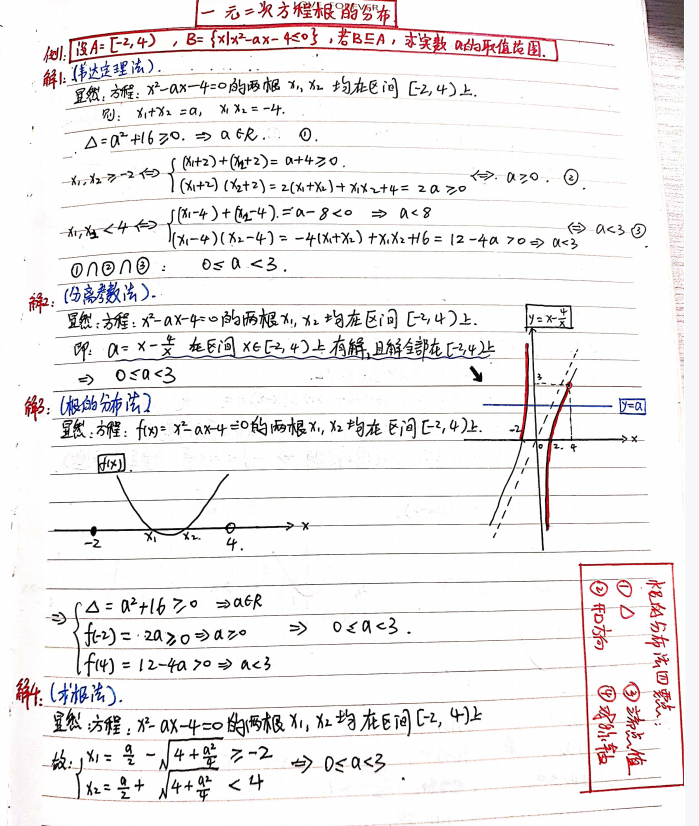 一元二次方程根的分布
例1: 设A=[-2,4), B={x|x²-ax-4≤0}, 若B⊆A, 求实数 a的取值范围.
解1: (韦达定理法).
显然: 方程: x²-ax-4=0的两根 x₁, x₂ 均在区间 [-2,4)上.
则: x₁+x₂=a, x₁x₂=-4.
Δ=a²+16≥0. ⇒ a∈R. ①.
x₁, x₂ ≥-2 ⇔ { (x₁+2)+(x₂+2)=a+4≥0.
(x₁+2)(x₂+2)=2(x₁+x₂)+x₁x₂+4=2a≥0 ⇔ a≥0. ②.
x₁, x₂<4 ⇔ { (x₁-4)+(x₂-4)=a-8<0 ⇒ a<8
(x₁-4)(x₂-4)=-4(x₁+x₂)+x₁x₂+16=12-4a>0 ⇒ a<3 ⇔ a<3 ③.
①∩②∩③: 0≤a<3.
解2: (分离参数法).
显然: 方程: x²-ax-4=0的两根 x₁, x₂ 均在区间 [-2,4)上.
即: a=x-4/x 在区间 x∈[-2,4)上有解, 且解全部在[-2,4)上
⇒ 0≤a<3
y=x-4/x
3
y=a
-2 0 2 4 x
解3: (根的分布法)
显然: 方程: f(x)=x²-ax-4=0的两根x₁, x₂均在区间 [-2,4)上.
f(x)
-2 x₁ x₂ 4. x
⇒ { Δ=a²+16≥0 ⇒a∈R
f(-2)=2a≥0⇒a≥0 ⇒ 0≤a<3.
f(4)=12-4a>0⇒a<3
根的分布法四要点:
① Δ ③ 端点值
② 开口方向 ④ 对称轴
解4: (求根法).
显然: 方程: x²-ax-4=0 的两根 x₁, x₂ 均在区间[-2,4)上
故: { x₁=a/2-√(4+a²/4) ≥-2
x₂=a/2+√(4+a²/4) <4 ⇒ 0≤a<3.